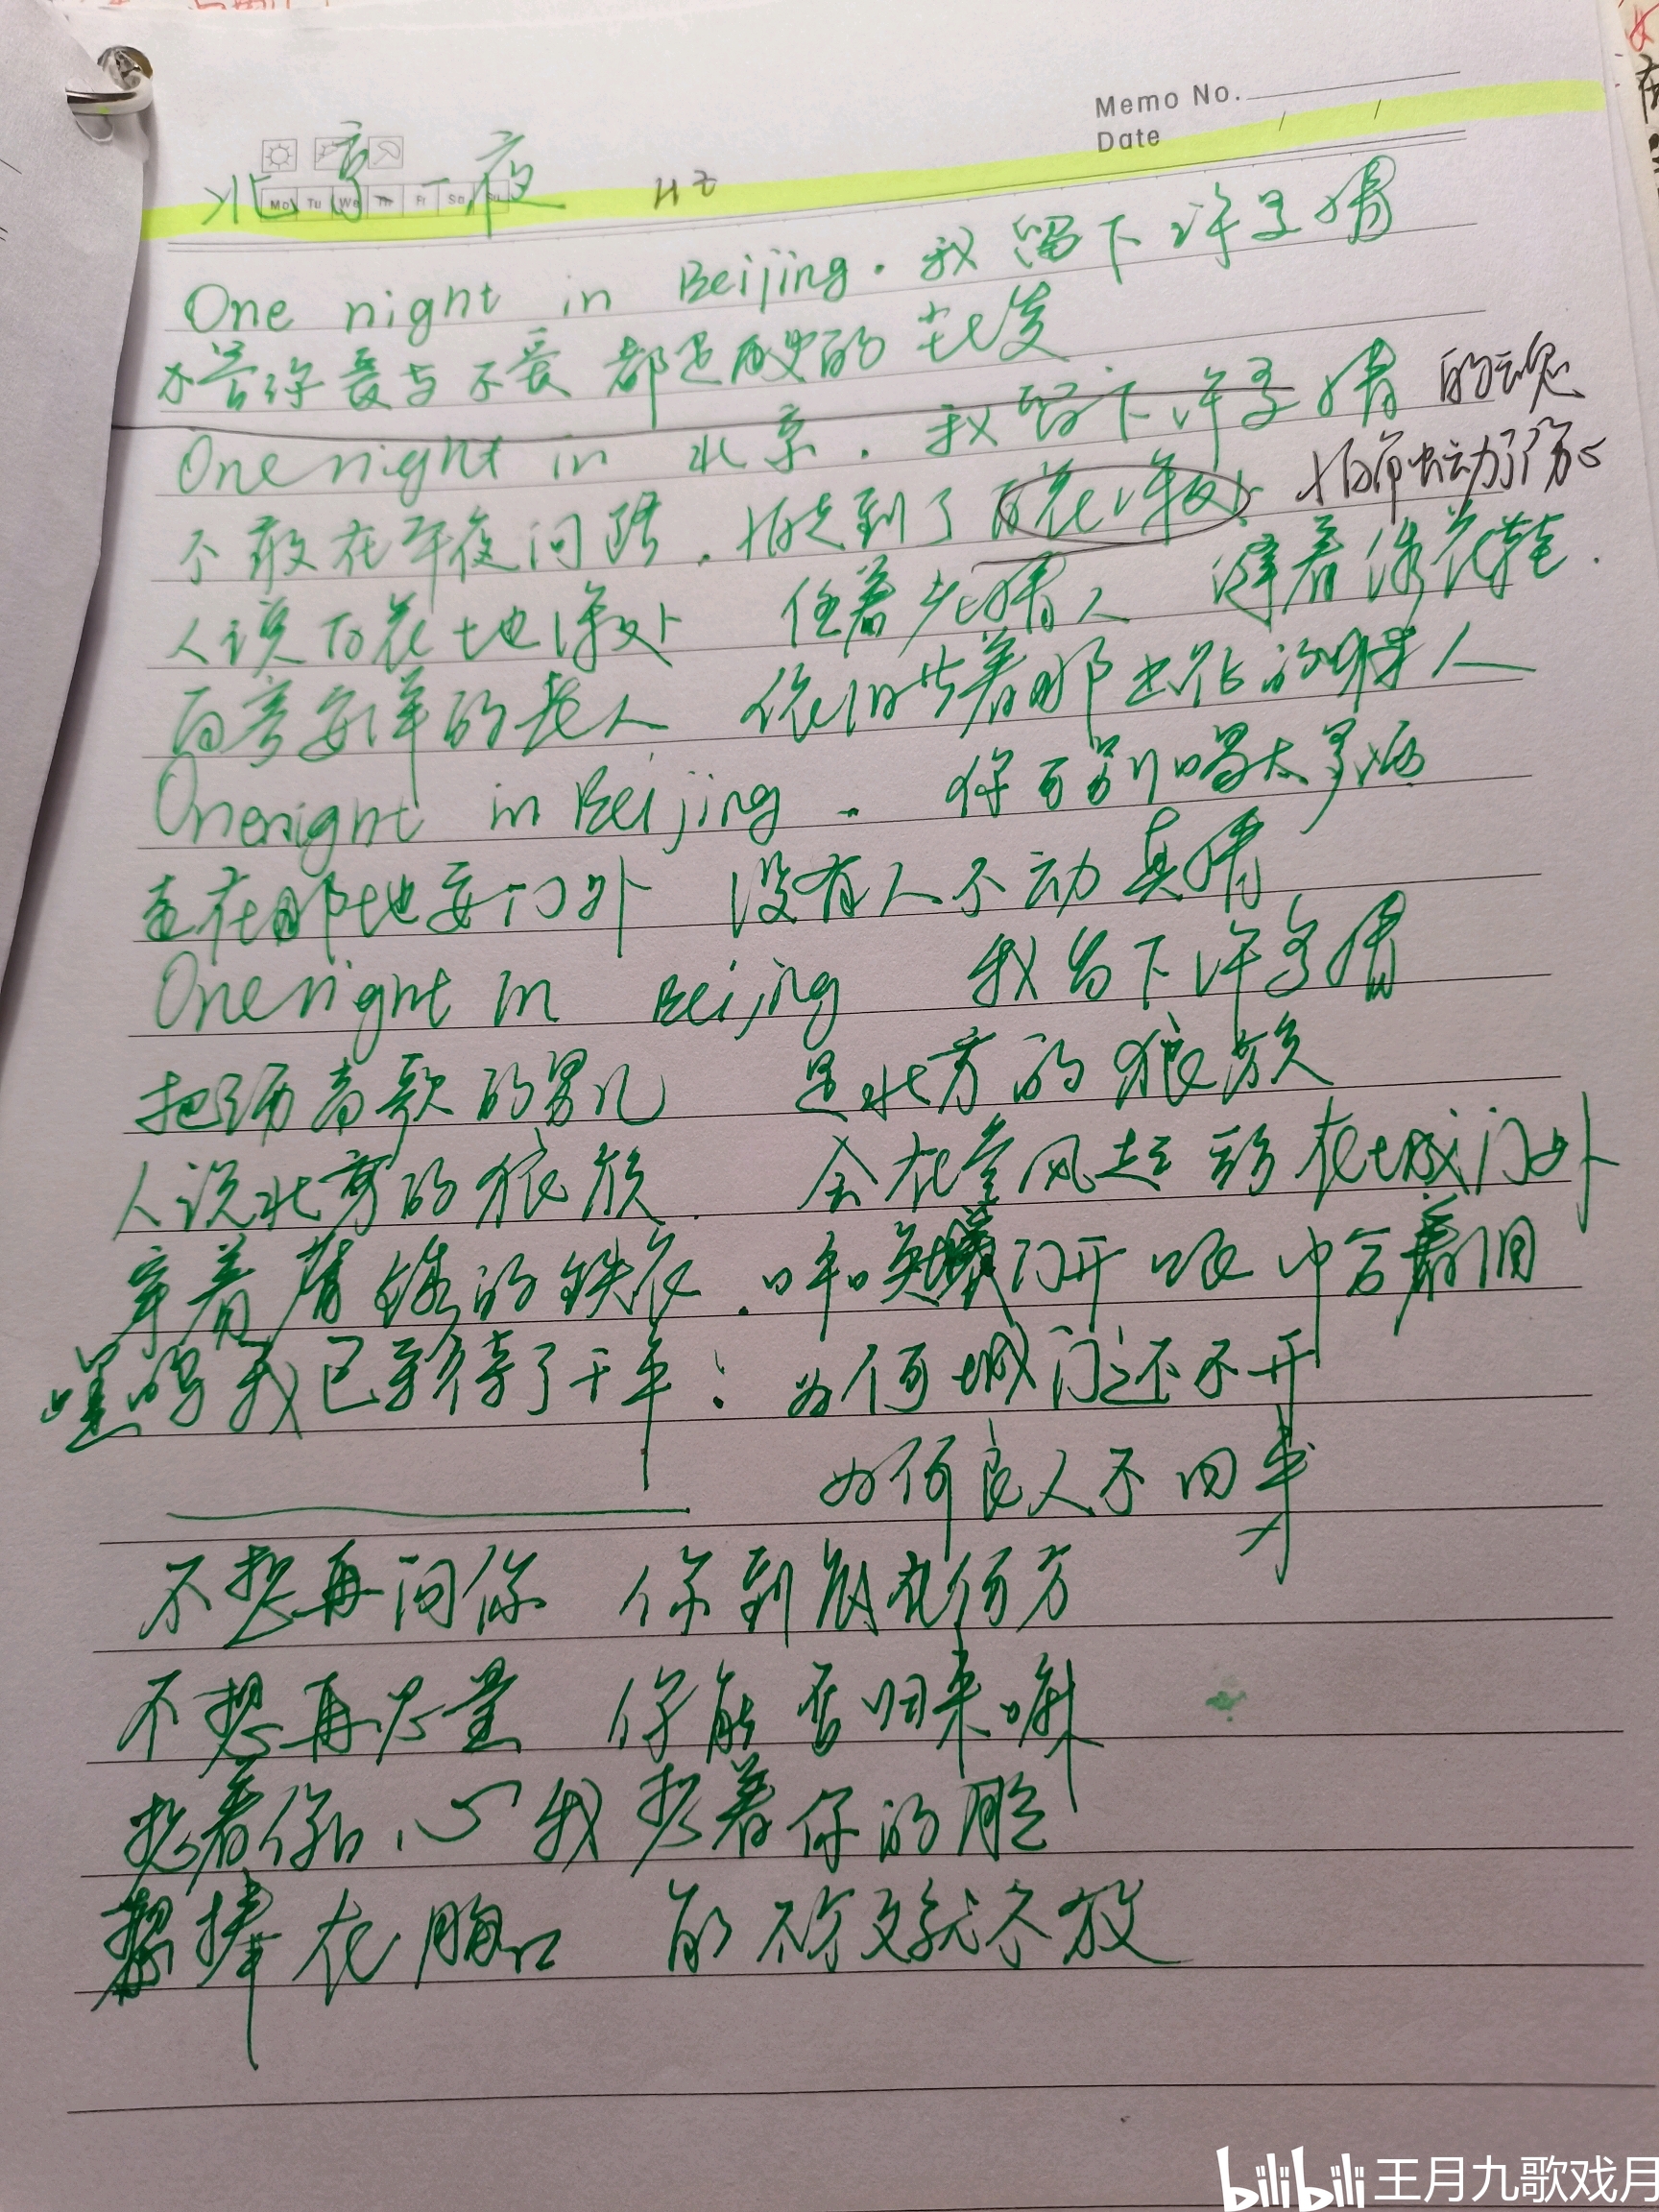 Memo No.
Date / /
Mo Tu We Th Fr Sa Su
北京一夜
One night in Beijing. 我留下许多情
不管你爱与不爱 都是历史的
One night in 北京. 我留下许多情 的魂
不敢在午夜问路. 怕走到了百花深处. 怕命
人说百花地深处 住着老情人 缝着绣花鞋.
面容安详的老人 依旧等着那出征的归人
One night in Beijing. 你可别喝太多酒
走在那地安门外 没有人不动真情
One night in Beijing 我留下许多情
把酒高歌的男儿 是北方的狼族
人说北方的狼族 会在寒风起 站在城门外
穿着腐锈的铁衣. 呼唤城门开 眼中含着泪
嘿呜 我已等待了千年: 为何城门还不开
为何良人不回来
不想再问你 你到底在何方
不想再思量 你能否归来嘛
想着你的心 我想着你的脸
想捧在胸口 能不放就不放
bilibili 王月九歌戏月